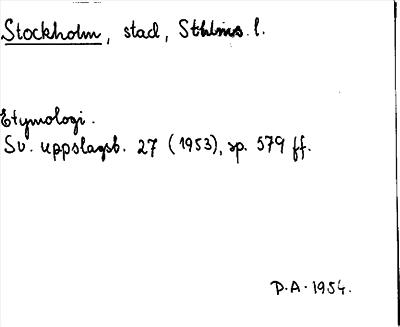 Stockholm, stad, Sthlms l.
Etymologi.
Sv. uppslagsb. 27 (1953), sp. 579 ff.
P.A. 1954.